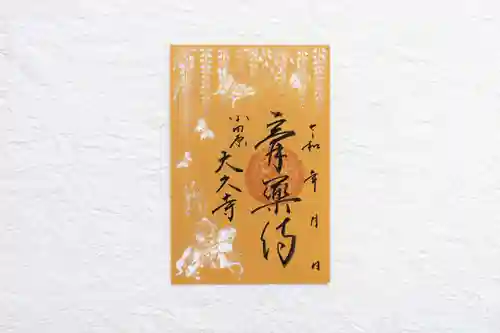 令和 年 月 日
薬侍
小田原
大久寺